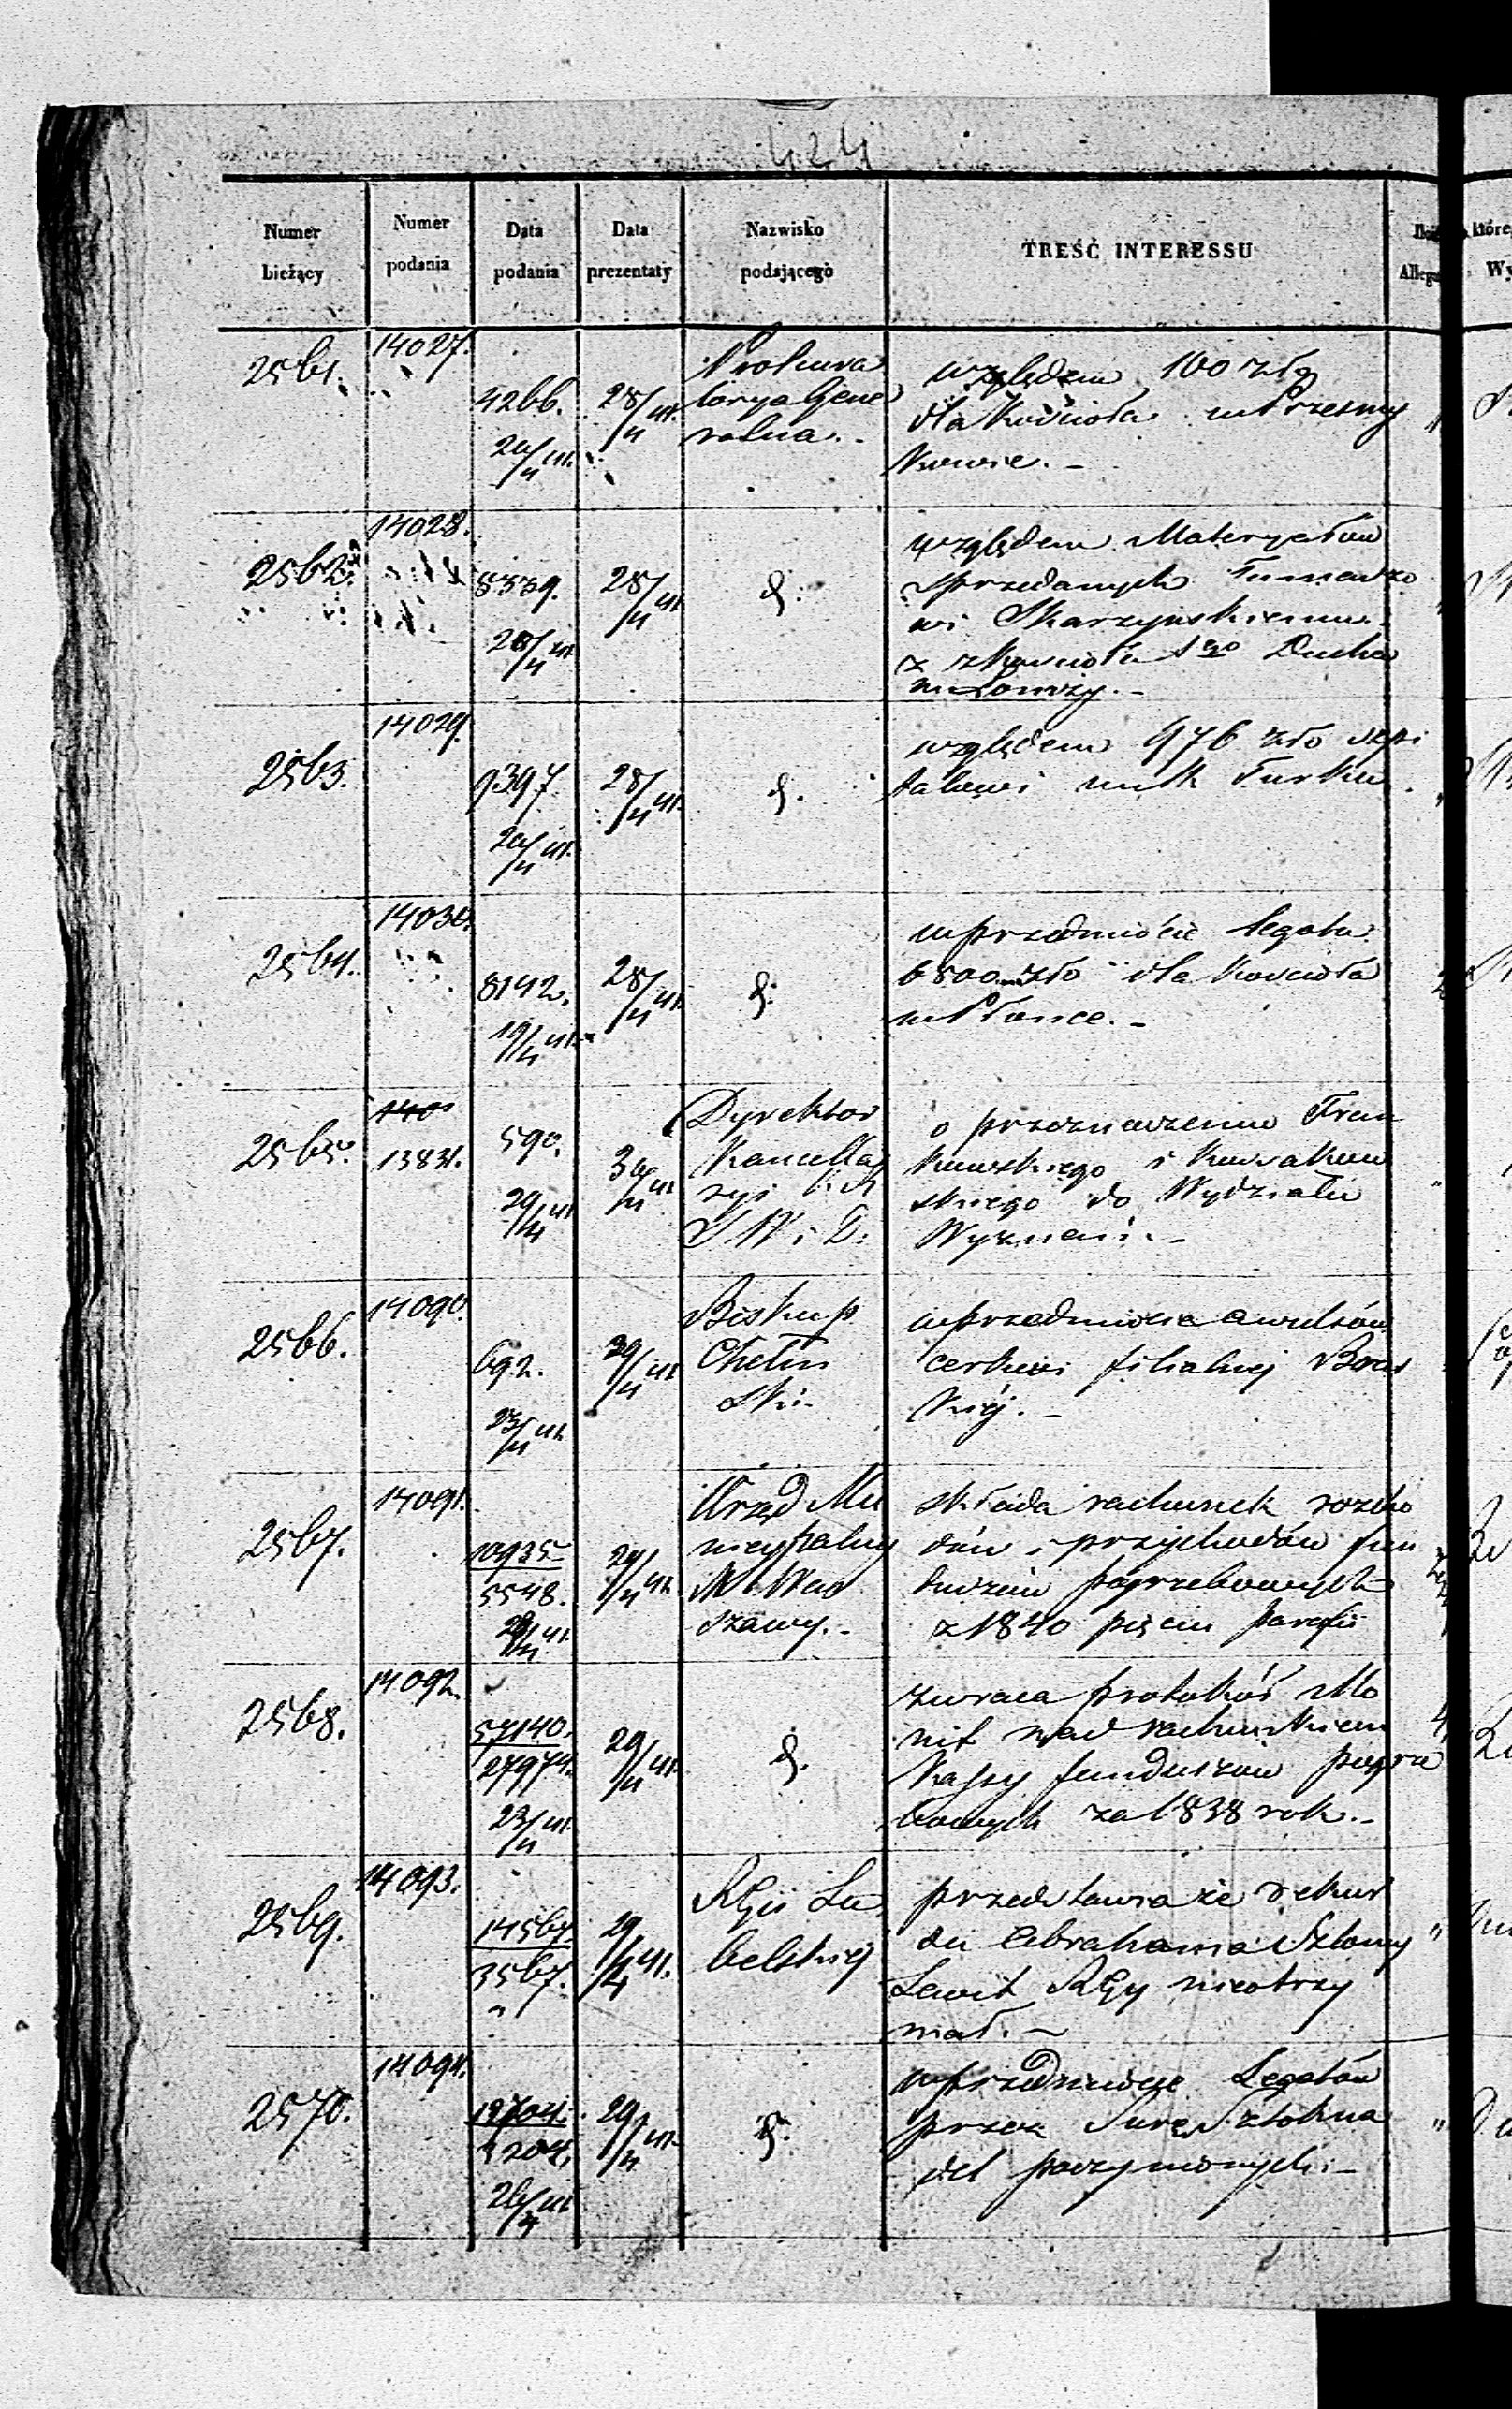 424
Numer bieżący
Numer podania
Data podania
Data prezentaty
Nazwisko podającego
TREŚĆ INTERESSU
2561.
14027.
4266.
20/4 41.
28/4 41.
Prokura
torya Gene
ralna.
względem 100 złp
dla kościoła w Przesmy
kowie.
2562.
14028.
8339.
20/4 41
28/4 41
d:
względem Materyałów
sprzedanych Tomaszo
wi Skarzyńskiemu
z kościoła Sgo Ducha
w Łomży.
2563.
14029.
9397.
20/4 41.
28/4 41.
d.
względem 976 zło szpi
talowi w M Turku
2564.
14030.
8142.
19/4 41.
28/4 41
d:
w przedmiocie legatu
6800 zło dla kościoła
w Płonce.
2565.
140
13831.
590.
29/4 41
30/4 41
Dyrektor
Kancella
ryi K R
S W i D:
o przeznaczeniu Fran
kowskiego i Kossakow
skiego do Wydziału
Wyznań.
2566.
14090.
692.
23/4 41.
29/4 41
Biskup
Chełm
ski
w przedmiocie awulsów
cerkwi filialnej
kiéj.
2567.
14091.
10935
5548.
41.
29/4 41.
Urząd Mu
nicypalny
M. War
szawy.
składa rachunek rozcho
dów i przychodów fun
duszów pogrzebowych
z 1840 pięciu parafii
2568.
14092.
57140.
27974.
23/4 41.
29/4 41.
d.
zwraca protokół Mo
nit nad rachunkiem
Kassy funduszów pogrze
bowych za 1838 rok.
2569.
14093.
14564.
3567.
29/4 41.
RGu Lu
belskiej
przedstawia że rekur
su Abrahama Szlomy
Lewit RGy nieotrzy
mał.
2570.
14094.
19704.
4204.
26/4 41
29/4 41.
d.
w przedmiocie Legatów
przez Surę Szlohna
del poczynionych.